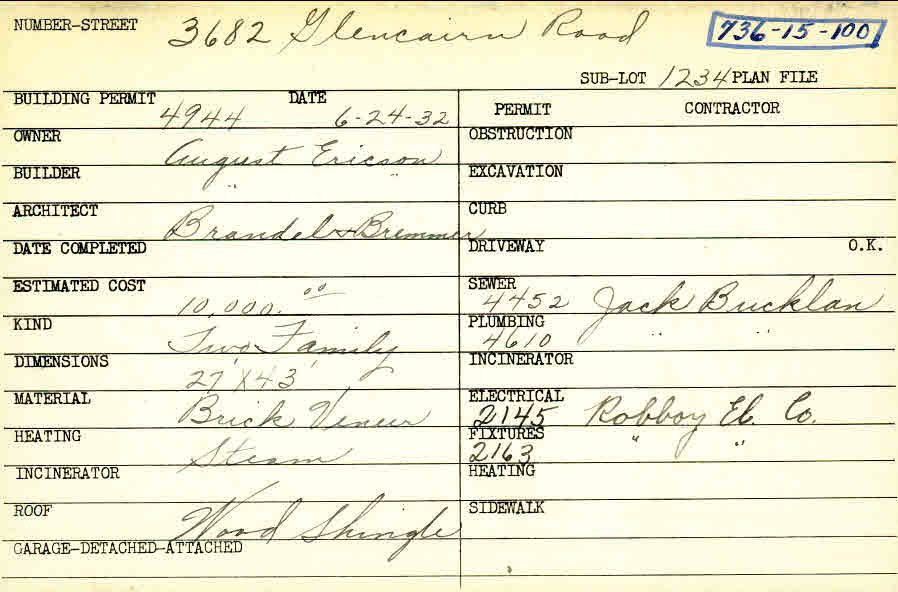 NUMBER-STREET 3682 Glencairn Road 736-15-100
SUB-LOT 1234 PLAN FILE
BUILDING PERMIT 4944 DATE 6-24-32
PERMIT CONTRACTOR
OWNER August Ericson
OBSTRUCTION
BUILDER " "
EXCAVATION
ARCHITECT Brandel & Bremmer
CURB
DATE COMPLETED
DRIVEWAY O.K.
ESTIMATED COST 10,000.00
SEWER 4452 Jack Bucklan
KIND Two Family
PLUMBING 4610 " "
DIMENSIONS 27' X 43'
INCINERATOR
MATERIAL Brick Veneer
ELECTRICAL 2145 Robboy El. Co.
HEATING Steam
FIXTURES 2163 " "
INCINERATOR
HEATING
ROOF Wood Shingle
SIDEWALK
GARAGE-DETACHED-ATTACHED